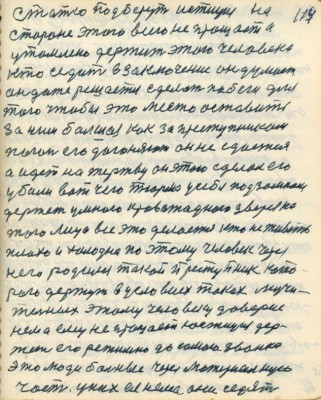 119
подберут истину на
стороне этого всего не прощает а
утомлено держит этого человека
кто сидит в заключение он думает
он даже решается сделат побеги для
того чтобы это место оставить
за ним как за преступником
погон его догоняют он не сдается
а идет на жертву он этого сделал его
убили вот чего творит у себя под замком
держит умного кровожадного зверька
этого лица все это делается кто не живить
плохо и холодно по этому человек через
него родился такой преступник кото
рого держут в условиях таких мучи
тельных этому человеку доверие
нема ему не прощает юстиция дер
жит его режимно до самого звонка
это люди больные через материальную
часть. у них ее нема они сидят